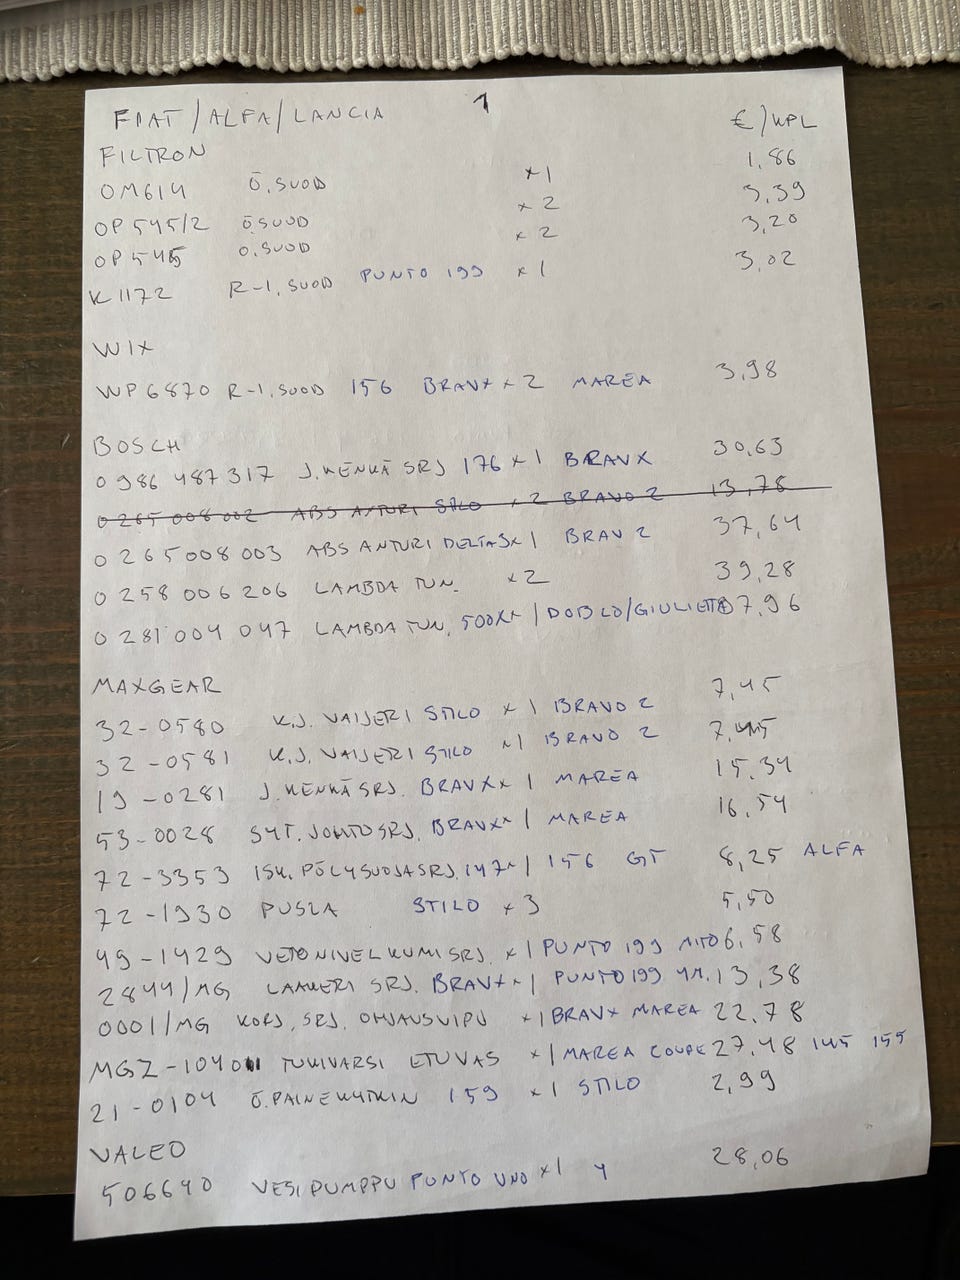 FIAT/ALFA/LANCIA 1 €/KPL
FILTRON
OM614 Ö.SUOD x1 1,86
OP545/2 Ö.SUOD x2 3,39
OP545 Ö.SUOD x2 3,20
K1172 R-I.SUOD PUNTO 199 x1 3,02
WIX
WP6870 R-I.SUOD 156 BRAVX x2 MAREA 3,98
BOSCH
0986 487317 J.KENKÄ SRJ 176 x1 BRAVX 30,63
0265 008 002 ABS ANTURI STILO x2 BRAVO 2 13,78
0265008 003 ABS ANTURI DELTA3x1 BRAV 2 37,64
0258 006 206 LAMBDA TUN. x2 39,28
0281 004 047 LAMBDA TUN. 500X x1 DOBLO/GIULIETTA 7,96
MAXGEAR
32-0580 K.J. VAIJERI STILO x1 BRAVO 2 7,45
32-0581 K.J. VAIJERI STILO x1 BRAVO 2 7,45
19-0281 J.KENKÄ SRJ. BRAVX x1 MAREA 15,34
53-0028 SYT.JOHTOSRJ. BRAVX x1 MAREA 16,54
72-3353 ISK.PÖLYSUOJASRJ. 147 x1 156 GT 8,25 ALFA
72-1930 PUSLA STILO x3 5,50
49-1429 VETONIVELKUMISRJ. x1 PUNTO 199 MITO 6,58
2844/MG LAAKERI SRJ. BRAVX x1 PUNTO 199 YM. 13,38
0001/MG KORJ.SRJ. OHJAUSVIPU x1 BRAVX MAREA 22,78
MGZ-1040 TUKIVARSI ETUVAS x1 MAREA COUPE 27,48 145 155
21-0104 Ö.PAINEKYTKIN 159 x1 STILO 2,99
VALEO
506640 VESIPUMPPU PUNTO UNO x1 Y 28,06